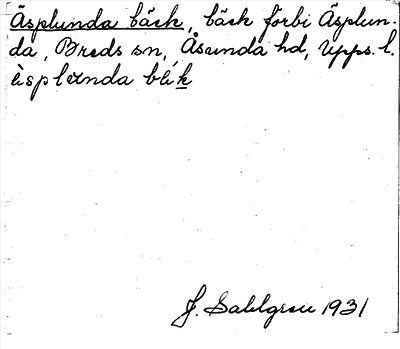 Äsplunda bäck, bäck förbi Äsplun-
da, Breds sn, Åsunda hd, Upps. l.
èsplunda blík
J. Sahlgren 1931